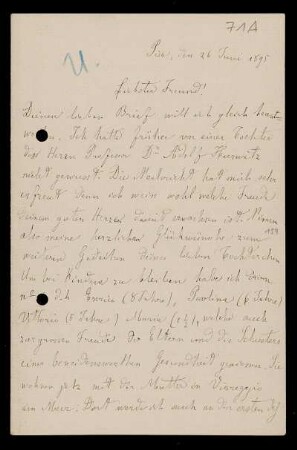 71A
U.
Pisa, den 26 Juni 1895
Liebster Freund!
Deinen lieben Brief will ich gleich beantworten
Ich hatte früher von einer Tochter
des Herrn Professor Dr Adolf Hurwitz
nicht gewusst. Die Nachricht hat mich sehr
erfreut denn ich weiss wohl welche Freude
Deinem guten Herzen damit erwachsen ist. Nimm
159
also meine herzlichen Glückwünsche zum
weiteren Gedeihen Deines lieben Töchterchen
Um bei Kindern zu bleiben habe ich
die Ennia (8 Jahre), Paolina (6 Jahre)
Vittorio (4 Jahre) Maria (1½), welche auch
zur grossen Freude der Eltern und
einer beneidenswerthen Gesundheit geniessen. Sie
wohnen jetzt mit der Mutter in Viareggio
am Meer. Dort werde ich auch in den ersten